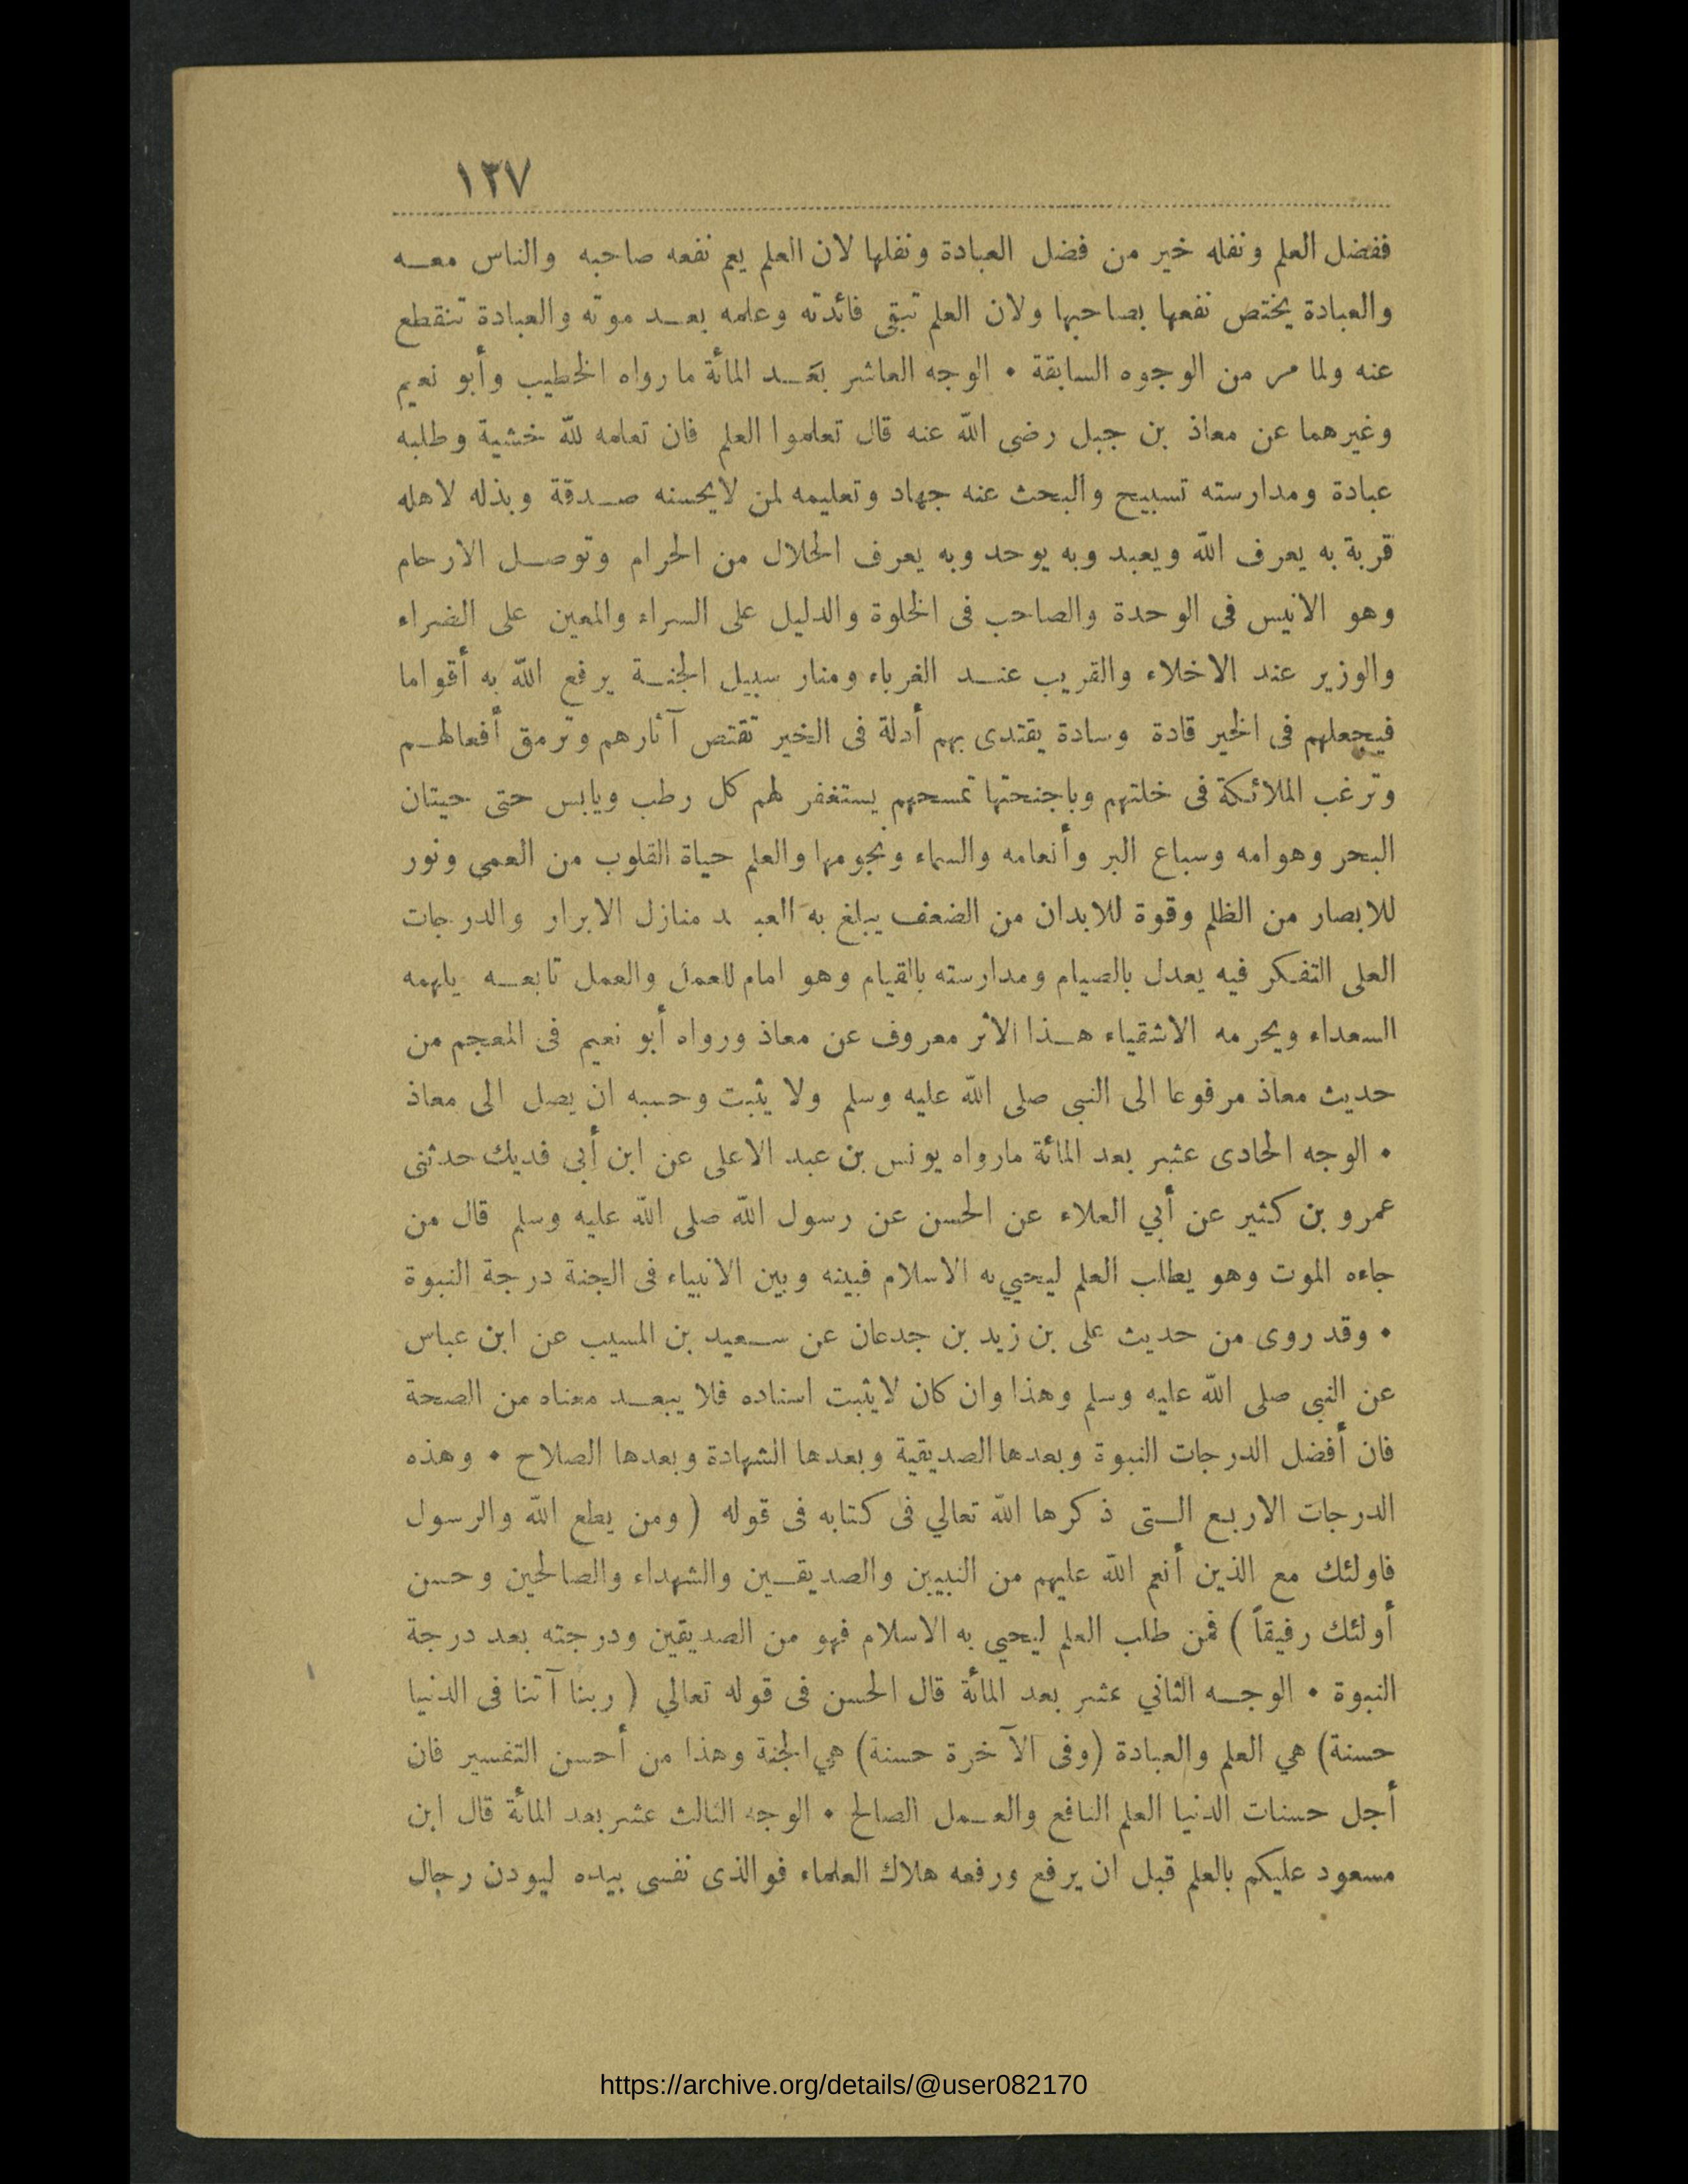 ١٣٧
ففضل العلم ونفله خير من فضل العبادة ونفلها لان العلم يعم نفعه صاحبه والناس معه
والعبادة يختص نفعها بصاحبها ولان العلم تبقى فائدته وعلمه بعد موته والعبادة تنقطع
عنه ولما مر من الوجوه السابقة • الوجه العاشر بعد المائة ما رواه الخطيب وأبو نعيم
وغيرهما عن معاذ بن جبل رضي الله عنه قال تعلموا العلم فان تعلمه لله خشية وطلبه
عبادة ومدارسته تسبيح والبحث عنه جهاد وتعليمه لمن لايحسنه صدقة وبذله لاهله
قربة به يعرف الله ويعبد وبه يوحد وبه يعرف الحلال من الحرام وتوصل الارحام
وهو الانيس فى الوحدة والصاحب فى الخلوة والدليل على السراء والمعين على الضراء
والوزير عند الاخلاء والقريب عند الغرباء ومنار سبيل الجنة يرفع الله به أقواما
فيجعلهم فى الخير قادة وسادة يقتدى بهم أدلة فى الخير تقتص آثارهم وترمق أفعالهم
وترغب الملائكة فى خلتهم وباجنحتها تمسحهم يستغفر لهم كل رطب ويابس حتى حيتان
البحر وهوامه وسباع البر وأنعامه والسماء ونجومها والعلم حياة القلوب من العمى ونور
للابصار من الظلم وقوة للابدان من الضعف يبلغ به العبد منازل الابرار والدرجات
العلى التفكر فيه يعدل بالصيام ومدارسته بالقيام وهو امام للعمل والعمل تابعه يلهمه
السعداء ويحرمه الاشقياء هذا الاثر معروف عن معاذ ورواه أبو نعيم فى المعجم من
حديث معاذ مرفوعا الى النبى صلى الله عليه وسلم ولا يثبت وحسبه ان يصل الى معاذ
• الوجه الحادى عشر بعد المائة مارواه يونس بن عبد الاعلى عن ابن أبي فديك حدثنى
عمرو بن كثير عن أبي العلاء عن الحسن عن رسول الله صلى الله عليه وسلم قال من
جاءه الموت وهو يطلب العلم ليحيي به الاسلام فبينه وبين الانبياء فى الجنة درجة النبوة
• وقد روى من حديث على بن زيد بن جدعان عن سعيد بن المسيب عن ابن عباس
عن النبى صلى الله عليه وسلم وهذا وان كان لايثبت اسناده فلا يبعد معناه من الصحة
فان أفضل الدرجات النبوة وبعدها الصديقية وبعدها الشهادة وبعدها الصلاح • وهذه
الدرجات الاربع التى ذكرها الله تعالي فى كتابه فى قوله ( ومن يطع الله والرسول
فاولئك مع الذين أنعم الله عليهم من النبيين والصديقين والشهداء والصالحين وحسن
أولئك رفيقاً ) فمن طلب العلم ليحيى به الاسلام فهو من الصديقين ودرجته بعد درجة
النبوة • الوجه الثاني عشر بعد المائة قال الحسن فى قوله تعالي ( ربنا آتنا فى الدنيا
حسنة) هي العلم والعبادة (وفى الآخرة حسنة) هي الجنة وهذا من أحسن التفسير فان
أجل حسنات الدنيا العلم النافع والعمل الصالح • الوجه الثالث عشر بعد المائة قال ابن
مسعود عليكم بالعلم قبل ان يرفع ورفعه هلاك العلماء فوالذى نفسى بيده ليودن رجال
https://archive.org/details/@user082170